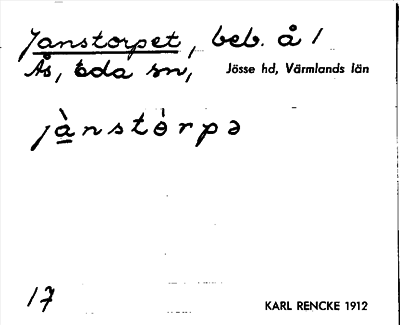 Janstorpet, beb. å /
Ås, Eda sn, Jösse hd, Värmlands län
jànstòrpə
17
KARL RENCKE 1912